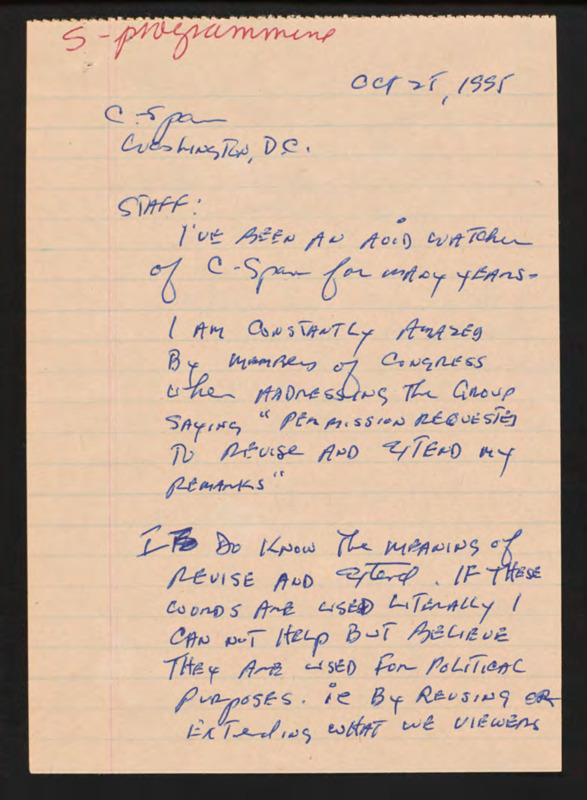 5-programming
Oct 25, 1995
C-Span
Washington, D.C.
STAFF:
I'VE BEEN AN AVID WATCHER
of C-Span for MANY YEARS-
I AM CONSTANTLY AMAZED
By MEMBERS of CONGRESS
when ADDRESSING The GROUP
SAYING "PERMISSION REQUESTED
TO REVISE AND EXTEND MY
REMARKS"
I DO KNOW The MEANING of
REVISE AND EXTEND. IF THESE
WORDS ARE USED LITERALLY I
CAN NOT HELP BUT BELIEVE
THEY ARE USED FOR POLITICAL
PURPOSES. ie By REVISING OR
EXTENDING WHAT WE VIEWERS